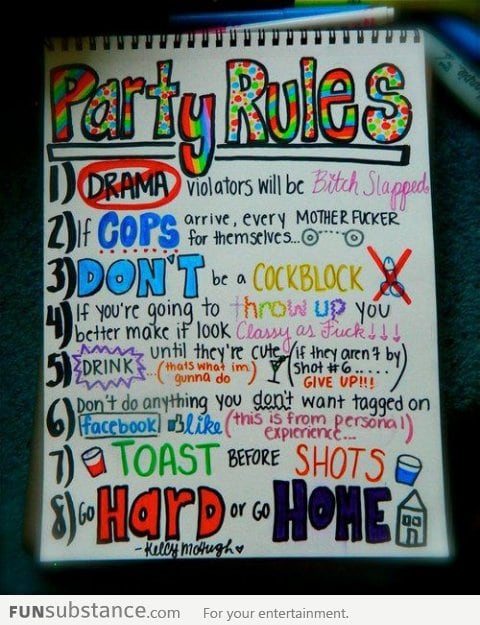 Party Rules
1) DRAMA violators will be Bitch Slapped
2) If COPS arrive, every MOTHER FUCKER
for themselves...
3) DON'T be a COCKBLOCK
4) If you're going to throw up you
better make it look Classy as Fuck!!!
5) DRINK until they're cute (if they aren't by)
...(thats what im) shot #6.....
gunna do GIVE UP!!!
6) Don't do anything you don't want tagged on
facebook like (this is from personal)
expierence...
7) TOAST BEFORE SHOTS
8) GO HARD or GO HOME
-Kelly McHugh
FUNsubstance.com For your entertainment.